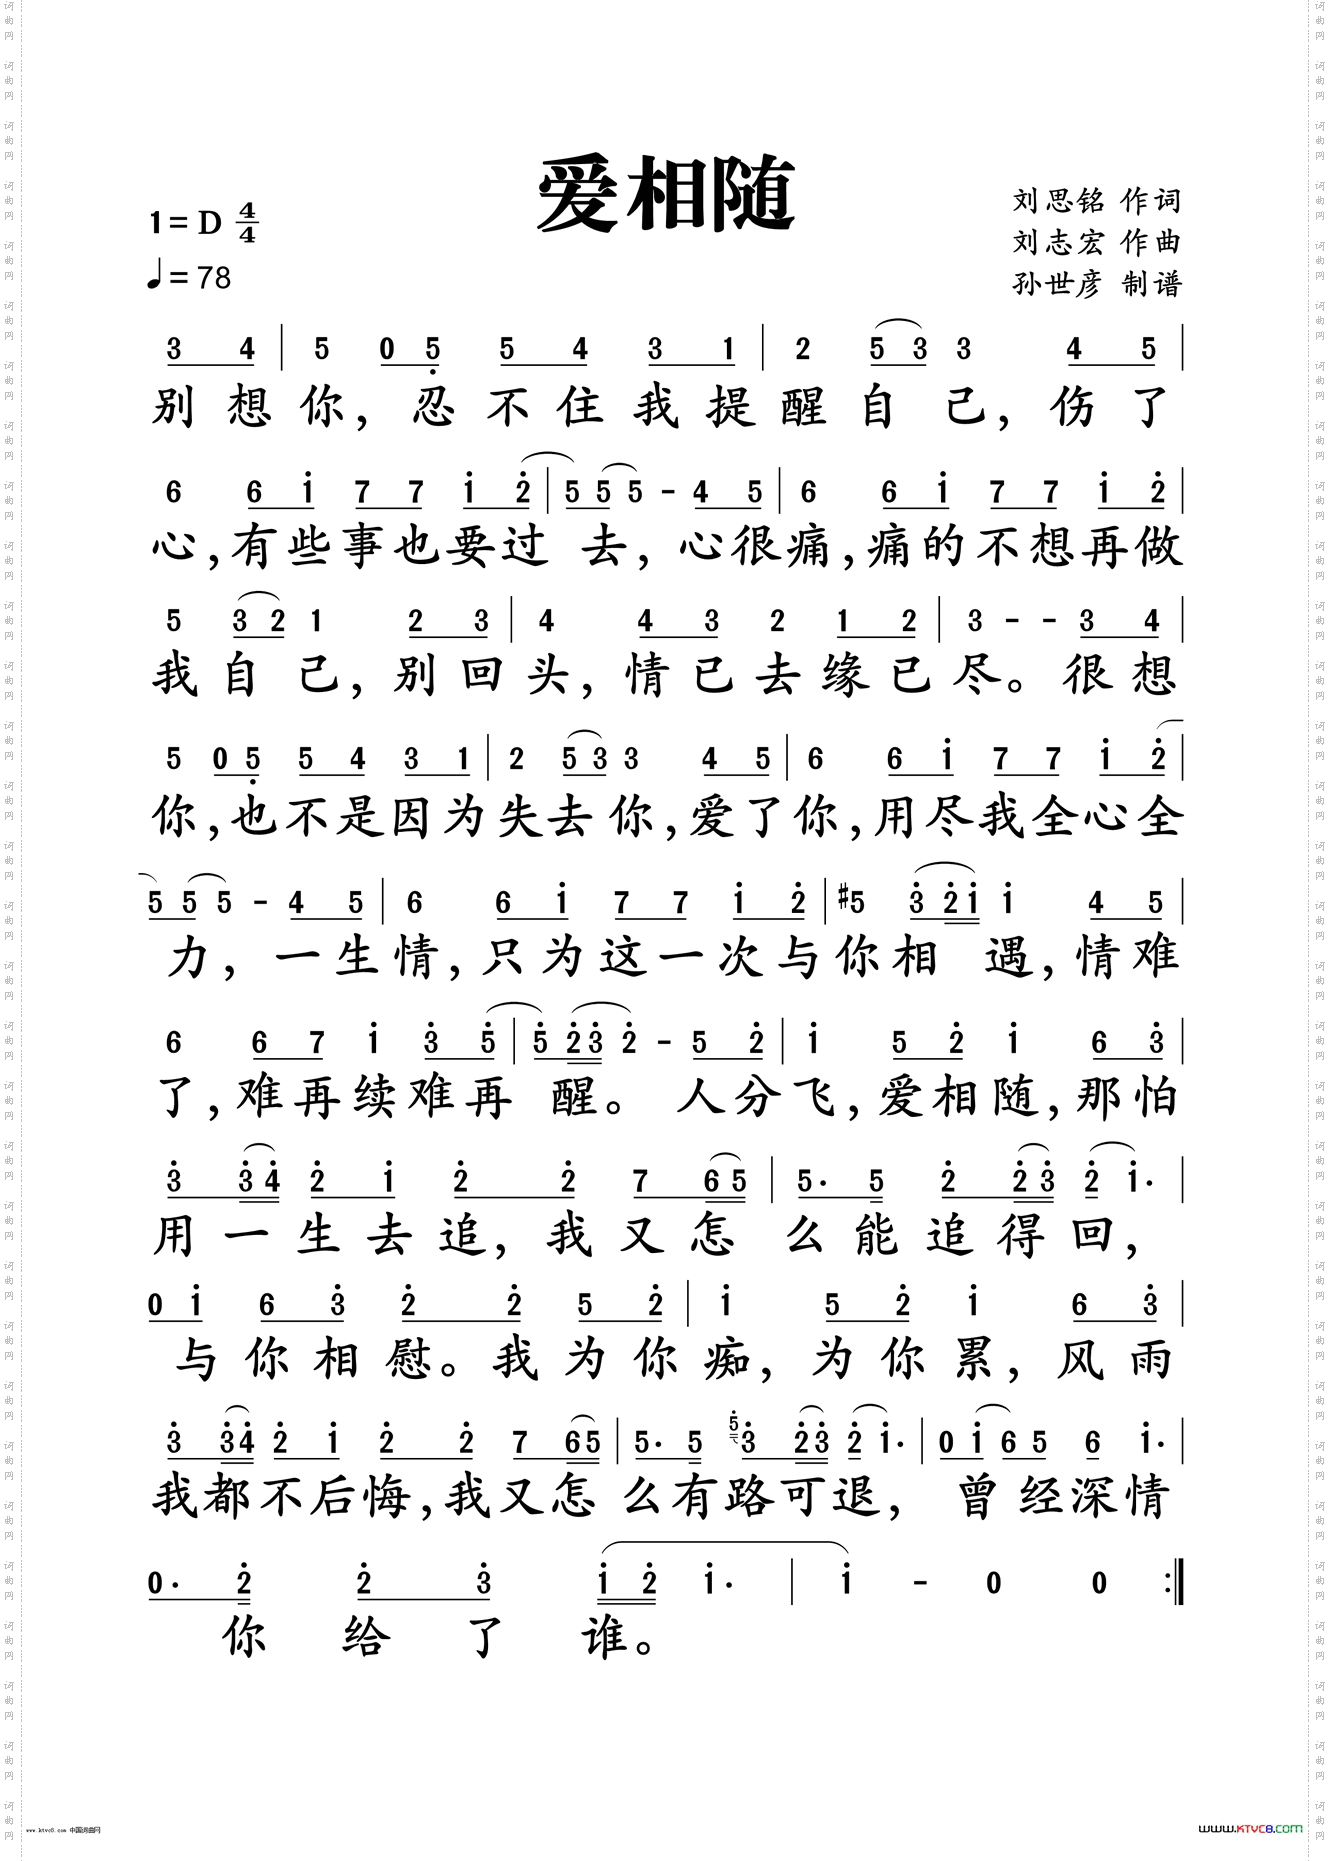 爱相随
1=D 4/4
♩=78
刘思铭 作词
刘志宏 作曲
孙世彦 制谱
3 4 | 5 0 5̣ 5 4 3 1 | 2 5 3 3 4 5 |
别想你，忍不住我提醒自己，伤了
6 6 i 7 7 i 2̇ | 5 5 5 - 4 5 | 6 6 i 7 7 i 2̇ |
心，有些事也要过去，心很痛，痛的不想再做
5 3 2 1 2 3 | 4 4 3 2 1 2 | 3 - - 3 4 |
我自己，别回头，情已去缘已尽。很想
5 0 5̣ 5 4 3 1 | 2 5 3 3 4 5 | 6 6 i 7 7 i 2̇ |
你，也不是因为失去你，爱了你，用尽我全心全
5 5 5 - 4 5 | 6 6 i 7 7 i 2̇ | #5 3̇ 2̇ i i 4 5 |
力，一生情，只为这一次与你相遇，情难
6 6 7 i 3̇ 5̇ | 5̇ 2̇ 3̇ 2̇ - 5 2̇ | i 5 2̇ i 6 3̇ |
了，难再续难再醒。人分飞，爱相随，那怕
3̇ 3̇ 4̇ 2̇ i 2̇ 2̇ 7 6 5 | 5· 5 2̇ 2̇ 3̇ 2̇ i· |
用一生去追，我又怎么能追得回，
0 i 6 3̇ 2̇ 2̇ 5 2̇ | i 5 2̇ i 6 3̇ |
与你相慰。我为你痴，为你累，风雨
3̇ 3̇ 4̇ 2̇ i 2̇ 2̇ 7 6 5 | 5· 5 5̇ 3̇ 2̇ 3̇ 2̇ i· | 0 i 6 5 6 i· |
我都不后悔，我又怎么有路可退，曾经深情
0· 2̇ 2̇ 3̇ i 2̇ i· | i - 0 0 :|
你给了谁。
www.ktvc8.com 中国词曲网
WWW.KTVC8.COM